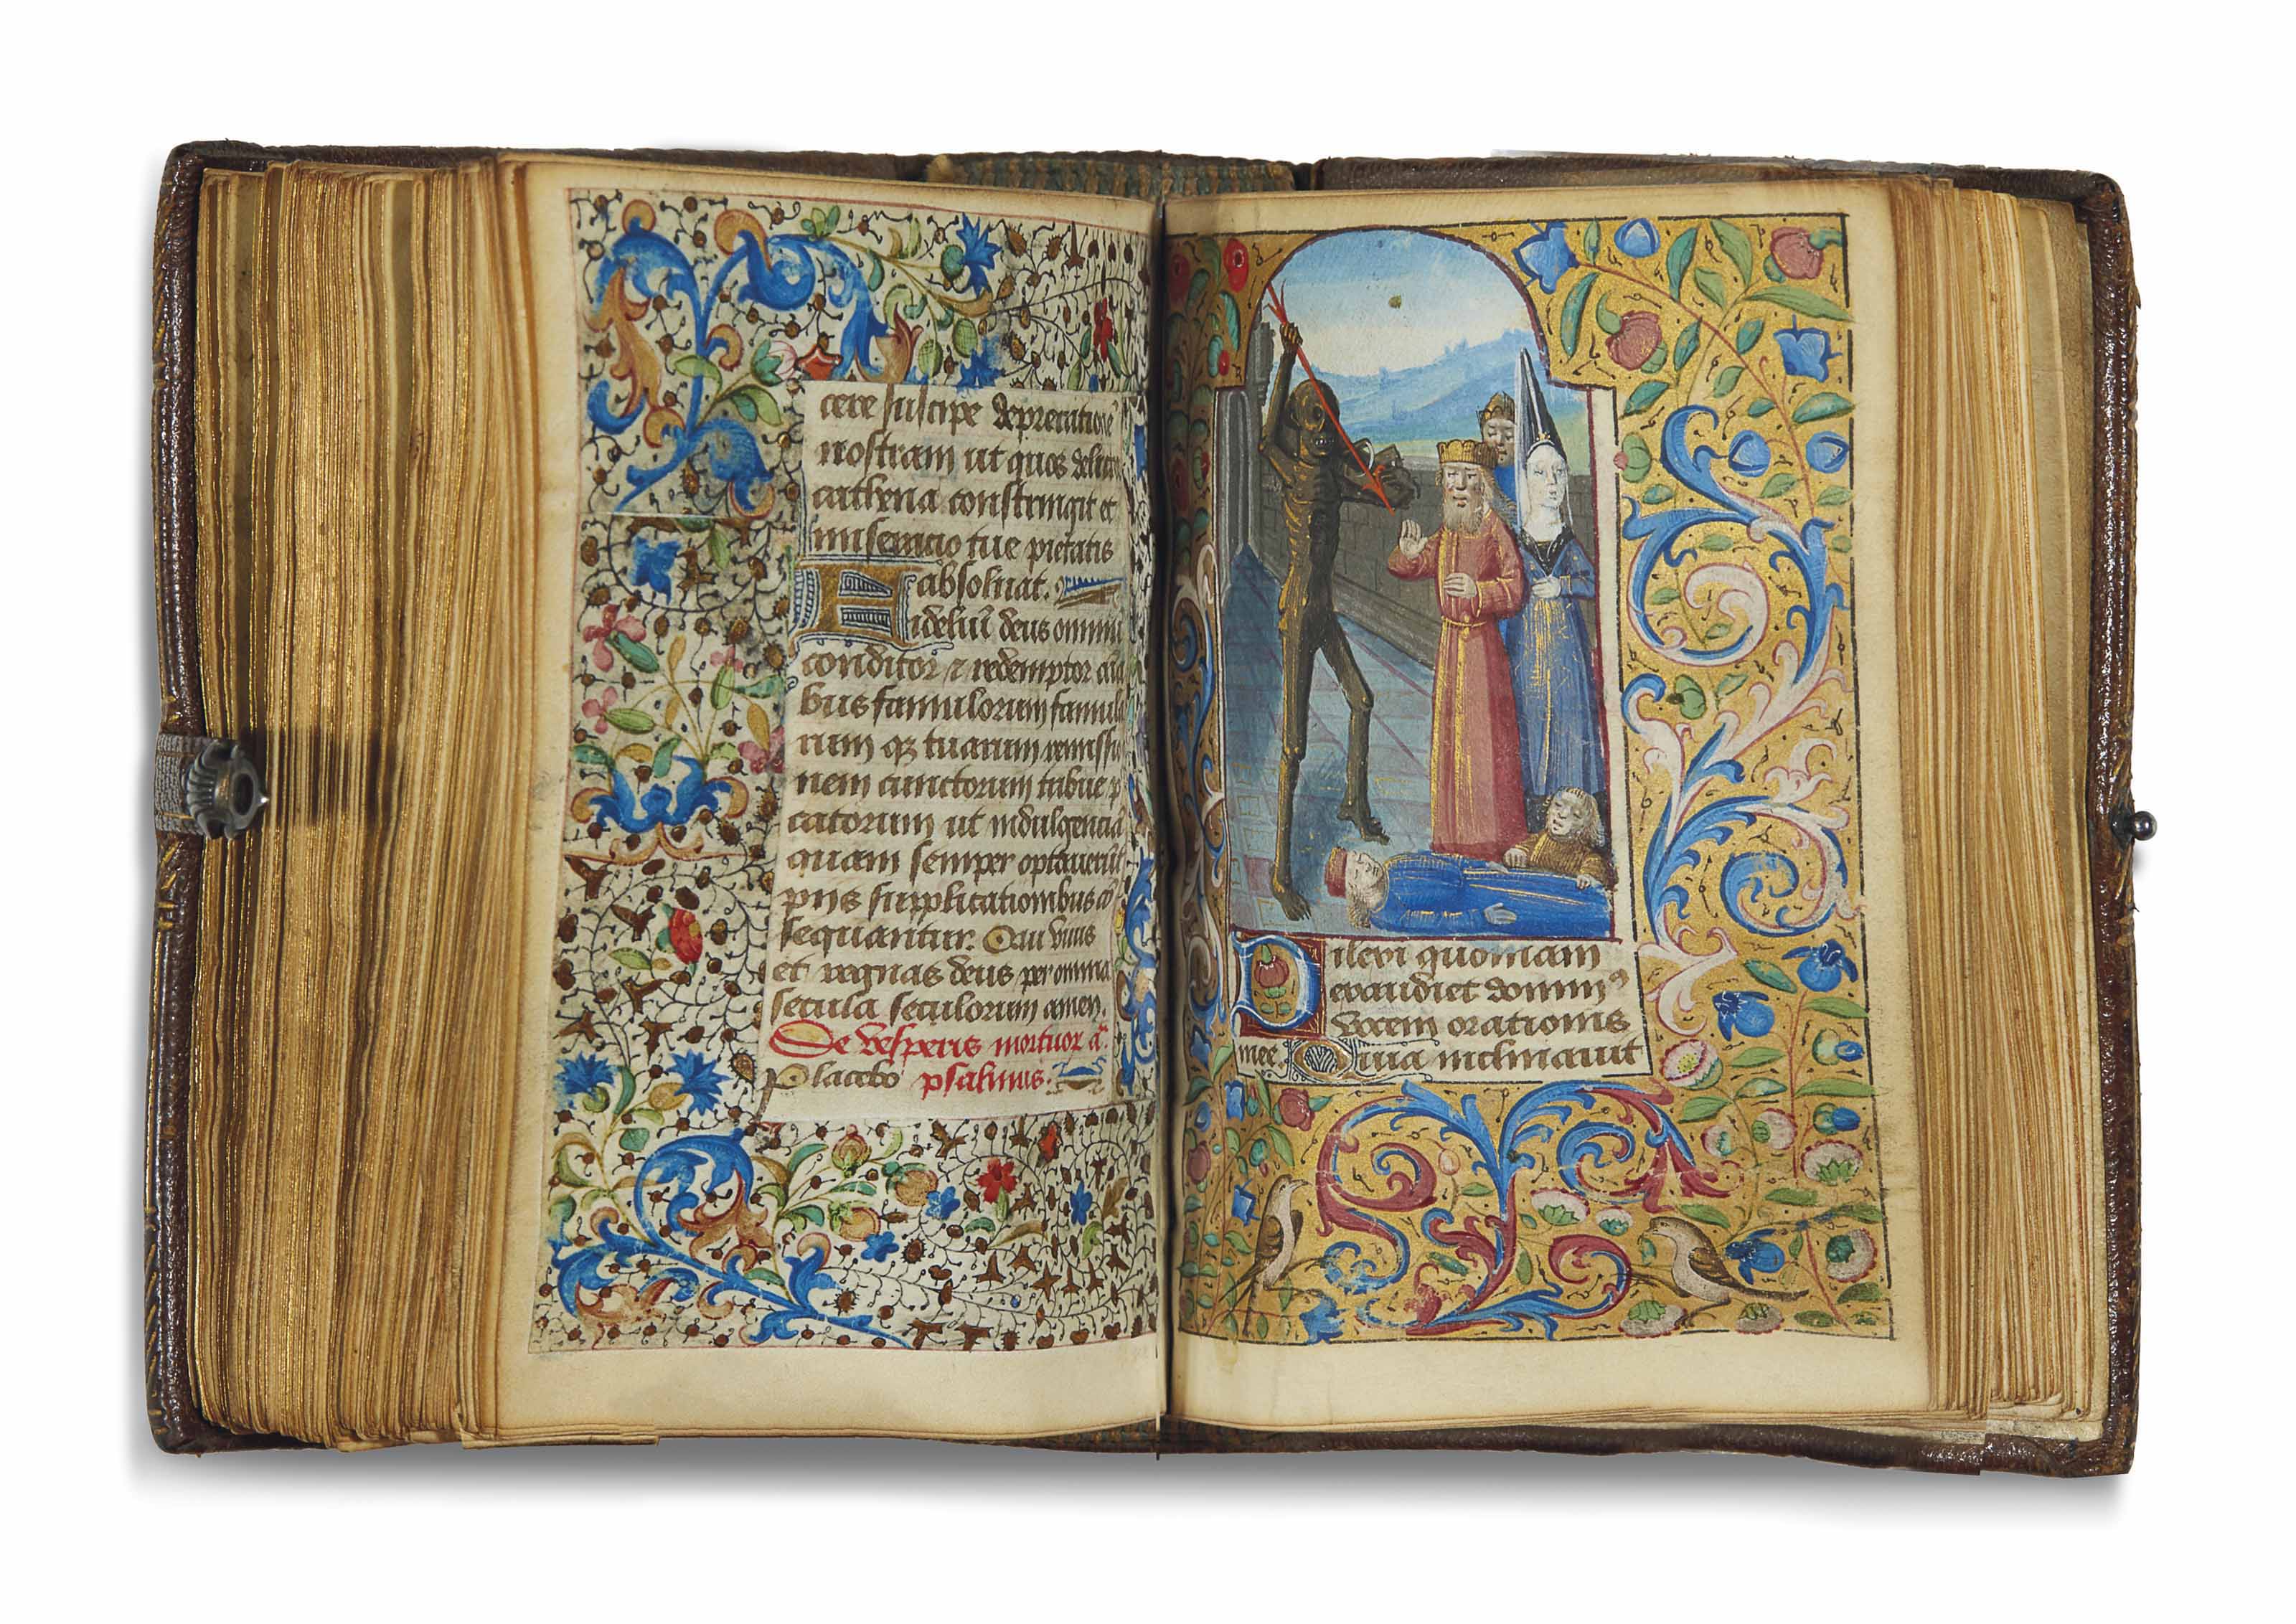 cere suscipe deprecationē
nostram ut quos delicto
cathena constringit et
miseracio tue pietatis
absoluat.
Fideliū deus omniū
conditor et redemptor aīa
bus famulorum famula
rum qz tuarum remissio
nem cunctorum tribue p
catorum ut indulgenciā
quam semper optauerūt
piis supplicationibus cō
sequantur. Qui viuis
et regnas deus per omnia
secula seculorum amen.
De vesperis mortuor a.
Placebo psalmus.
Dilexi quoniam
exaudiet dominꝰ
vocem orationis
mee. Quia inclinauit